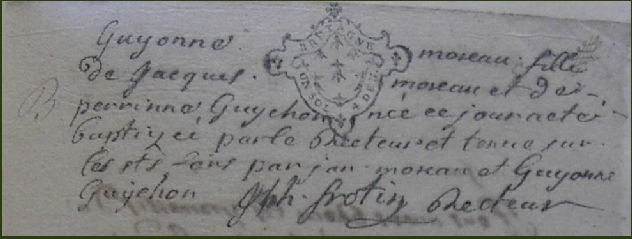 Guyonne moreau fille
de Jacques moreau et de
B perrinne Guychon née ce jour a eté
baptizéé par le Recteur et tenue sur
les sts fons par jan moreau et Guyonne
Guychon Jph frotin Recteur
BRETAGNE
UN SOL